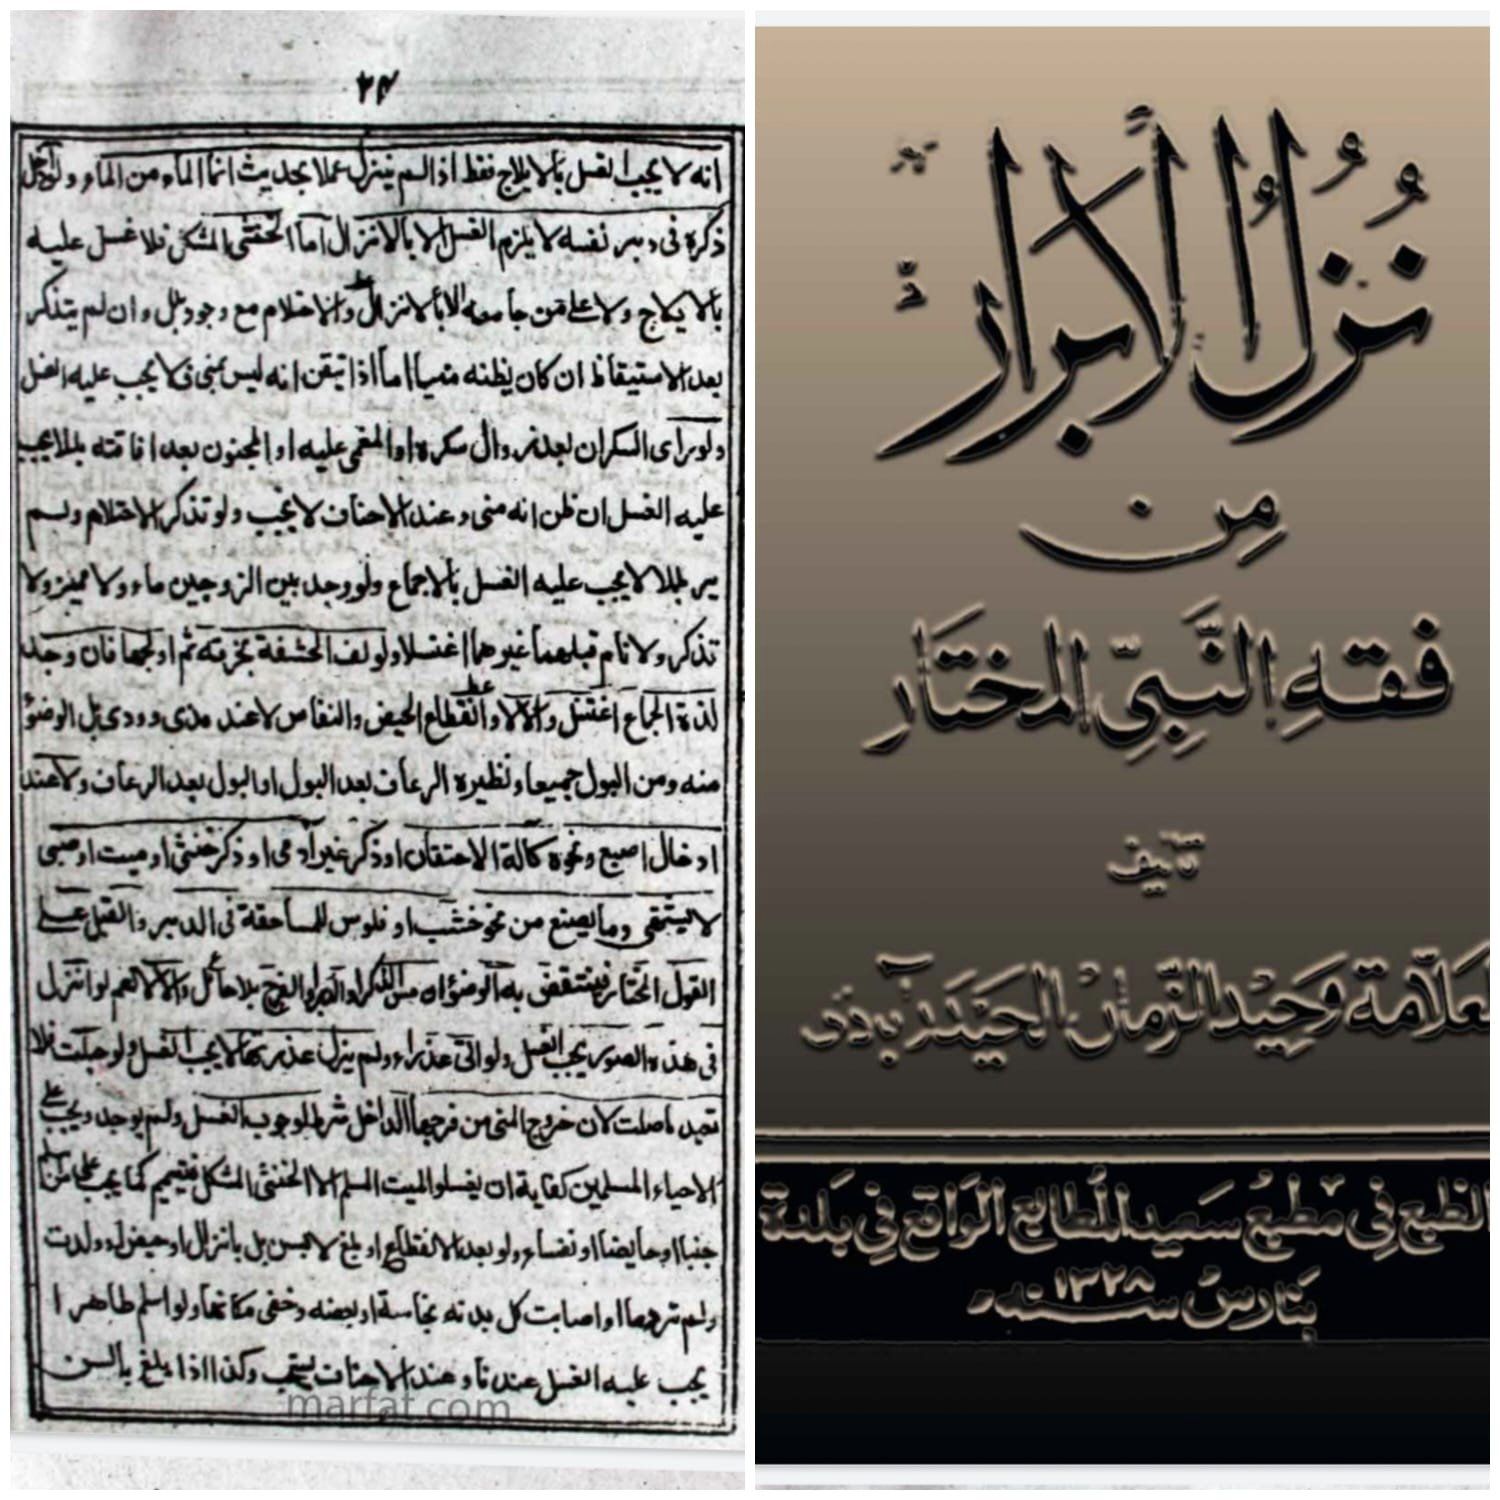 ۲۴
انه لا يجب الغسل بالايلاج فقط اذا لم ينزل عملا بحديث انما الماء من الماء ولو ادخل
ذكره فى دبر نفسه لا يلزم الغسل الا بالانزال اما الخنثى المشكل فلا غسل عليه
بالايلاج ولا على من جامعه الا بالانزال والاحتلام مع وجود بلل وان لم يتذكر
بعد الاستيقاظ ان كان يظنه منيا اما اذا تيقن انه ليس بمنى فلا يجب عليه الغسل
ولو راى السكران بعد زوال سكره او المغمى عليه او المجنون بعد افاقته بللا يجب
عليه الغسل ان ظن انه منى وعند الاحناف لا يجب ولو تذكر الاحتلام ولم
ير بللا لا يجب عليه الغسل بالاجماع ولو وجد بين الزوجين ماء ولا مميز ولا
تذكر ولا نام قبلهما غيرهما اغتسلا ولو لف الحشفة بخرقة ثم اولجها فان وجد
لذة الجماع اغتسل والا لا وانقطاع الحيض والنفاس لا عند مذى وودى بل الوضوء
منه ومن البول جميعا ونظيره الرعاف بعد البول او البول بعد الرعاف ولا عند
ادخال اصبع ونحوه كآلة الاحتقان او ذكر غير آدمى او ذكر خنثى او ميت او صبى
لا يشتهى وما يصنع من نحو خشب او فلوس للمساحقة فى الدبر والقبل على
القول المختار فينتقض به الوضوء ان مس الذكر او الدبر او الفرج بلا حائل والا لا نعم لو انزل
فى هذه الصور يجب الغسل ولو اتى عذراء ولم يزل عذرتها لا يجب الغسل ولو حبلت فلا
تعيد ما صلت لان خروج المنى من فرجها الداخل شرط لوجوب الغسل ولم يوجد ويجب على
الاحياء المسلمين كفاية ان يغسلوا الميت المسلم الا الخنثى المشكل فييمم كما يجب على من اسلم
جنبا او حايضا او نفساء ولو بعد الانقطاع او بلغ لا بسن بل بانزال او حيض او ولدت
ولم تر دما او اصابت كل بدنه نجاسة او بعضه وخفى مكانها ولو اسلم طاهرا
يجب عليه الغسل عندنا وعند الاحناف يستحب وكذا اذا بلغ بالسن
marfat.com
نُزُلُ الأَبرَار
مِن
فقهِ النَّبِيِّ المختَار
تأليف
العلامة وحيد الزمان الحيدرآبادى
الطبع في مطبع سعيد المطابع الواقع في بلدة
بنارس سنه ١٣٢٨